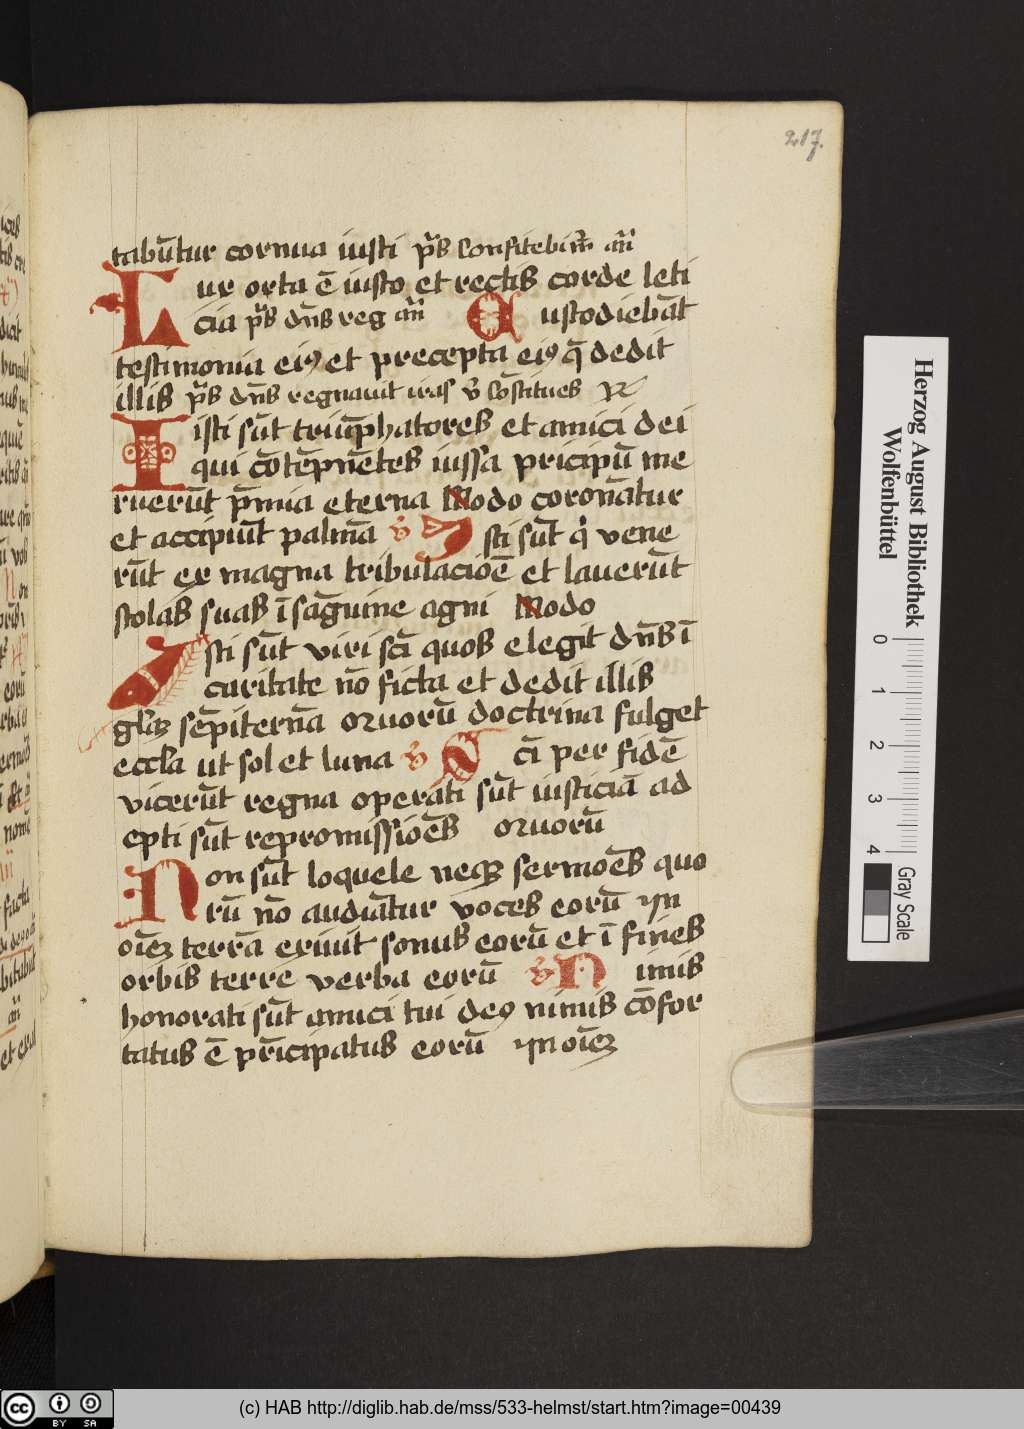 217.
tabūtur cornua iusti p̄s Confitebim̄ an̄
Lux orta ē iusto et rectis corde leti
cia p̄s dn̄s reg an̄ Custodiebāt
testimonia eiꝯ et precepta eiꝯ q̄ dedit
illis p̄s dn̄s regnauit iras v̄ Cōstitues R
Isti sūt triūphatores et amici dei
qui cōtēpnētes iussa pricipū me
ruerūt p̄mia eterna Modo coronātur
et accipiūt palmā v̄ Isti sūt qͥ vene
rūt ex magna tribulacioē et lauerūt
stolas suas ī sāguine agni Modo
Isti sūt viri sc̄i quos elegit dn̄s ī
caritate nō ficta et dedit illis
gl̄iaꝫ sēpiternā Quorū doctrina fulget
eccl̄a ut sol et luna v̄ Sc̄i per fidē
vicerūt regna operati sūt iusticiā ad
epti sūt repromissiōes Quorū
Non sūt loquele neqꝫ sermōes quo
rū nō audiātur voces eorū In
oīeꝫ terrā exiuit sonus eorū et ī fines
orbis terre verba eorū v̄ Nimis
honorati sūt amici tui deꝯ nimis cōfor
tatus ē pr̄icipatus eorū In oīeꝫ
Herzog August Bibliothek
Wolfenbüttel
0 1 2 3 4
Gray Scale
(c) HAB http://diglib.hab.de/mss/533-helmst/start.htm?image=00439
cc BY SA